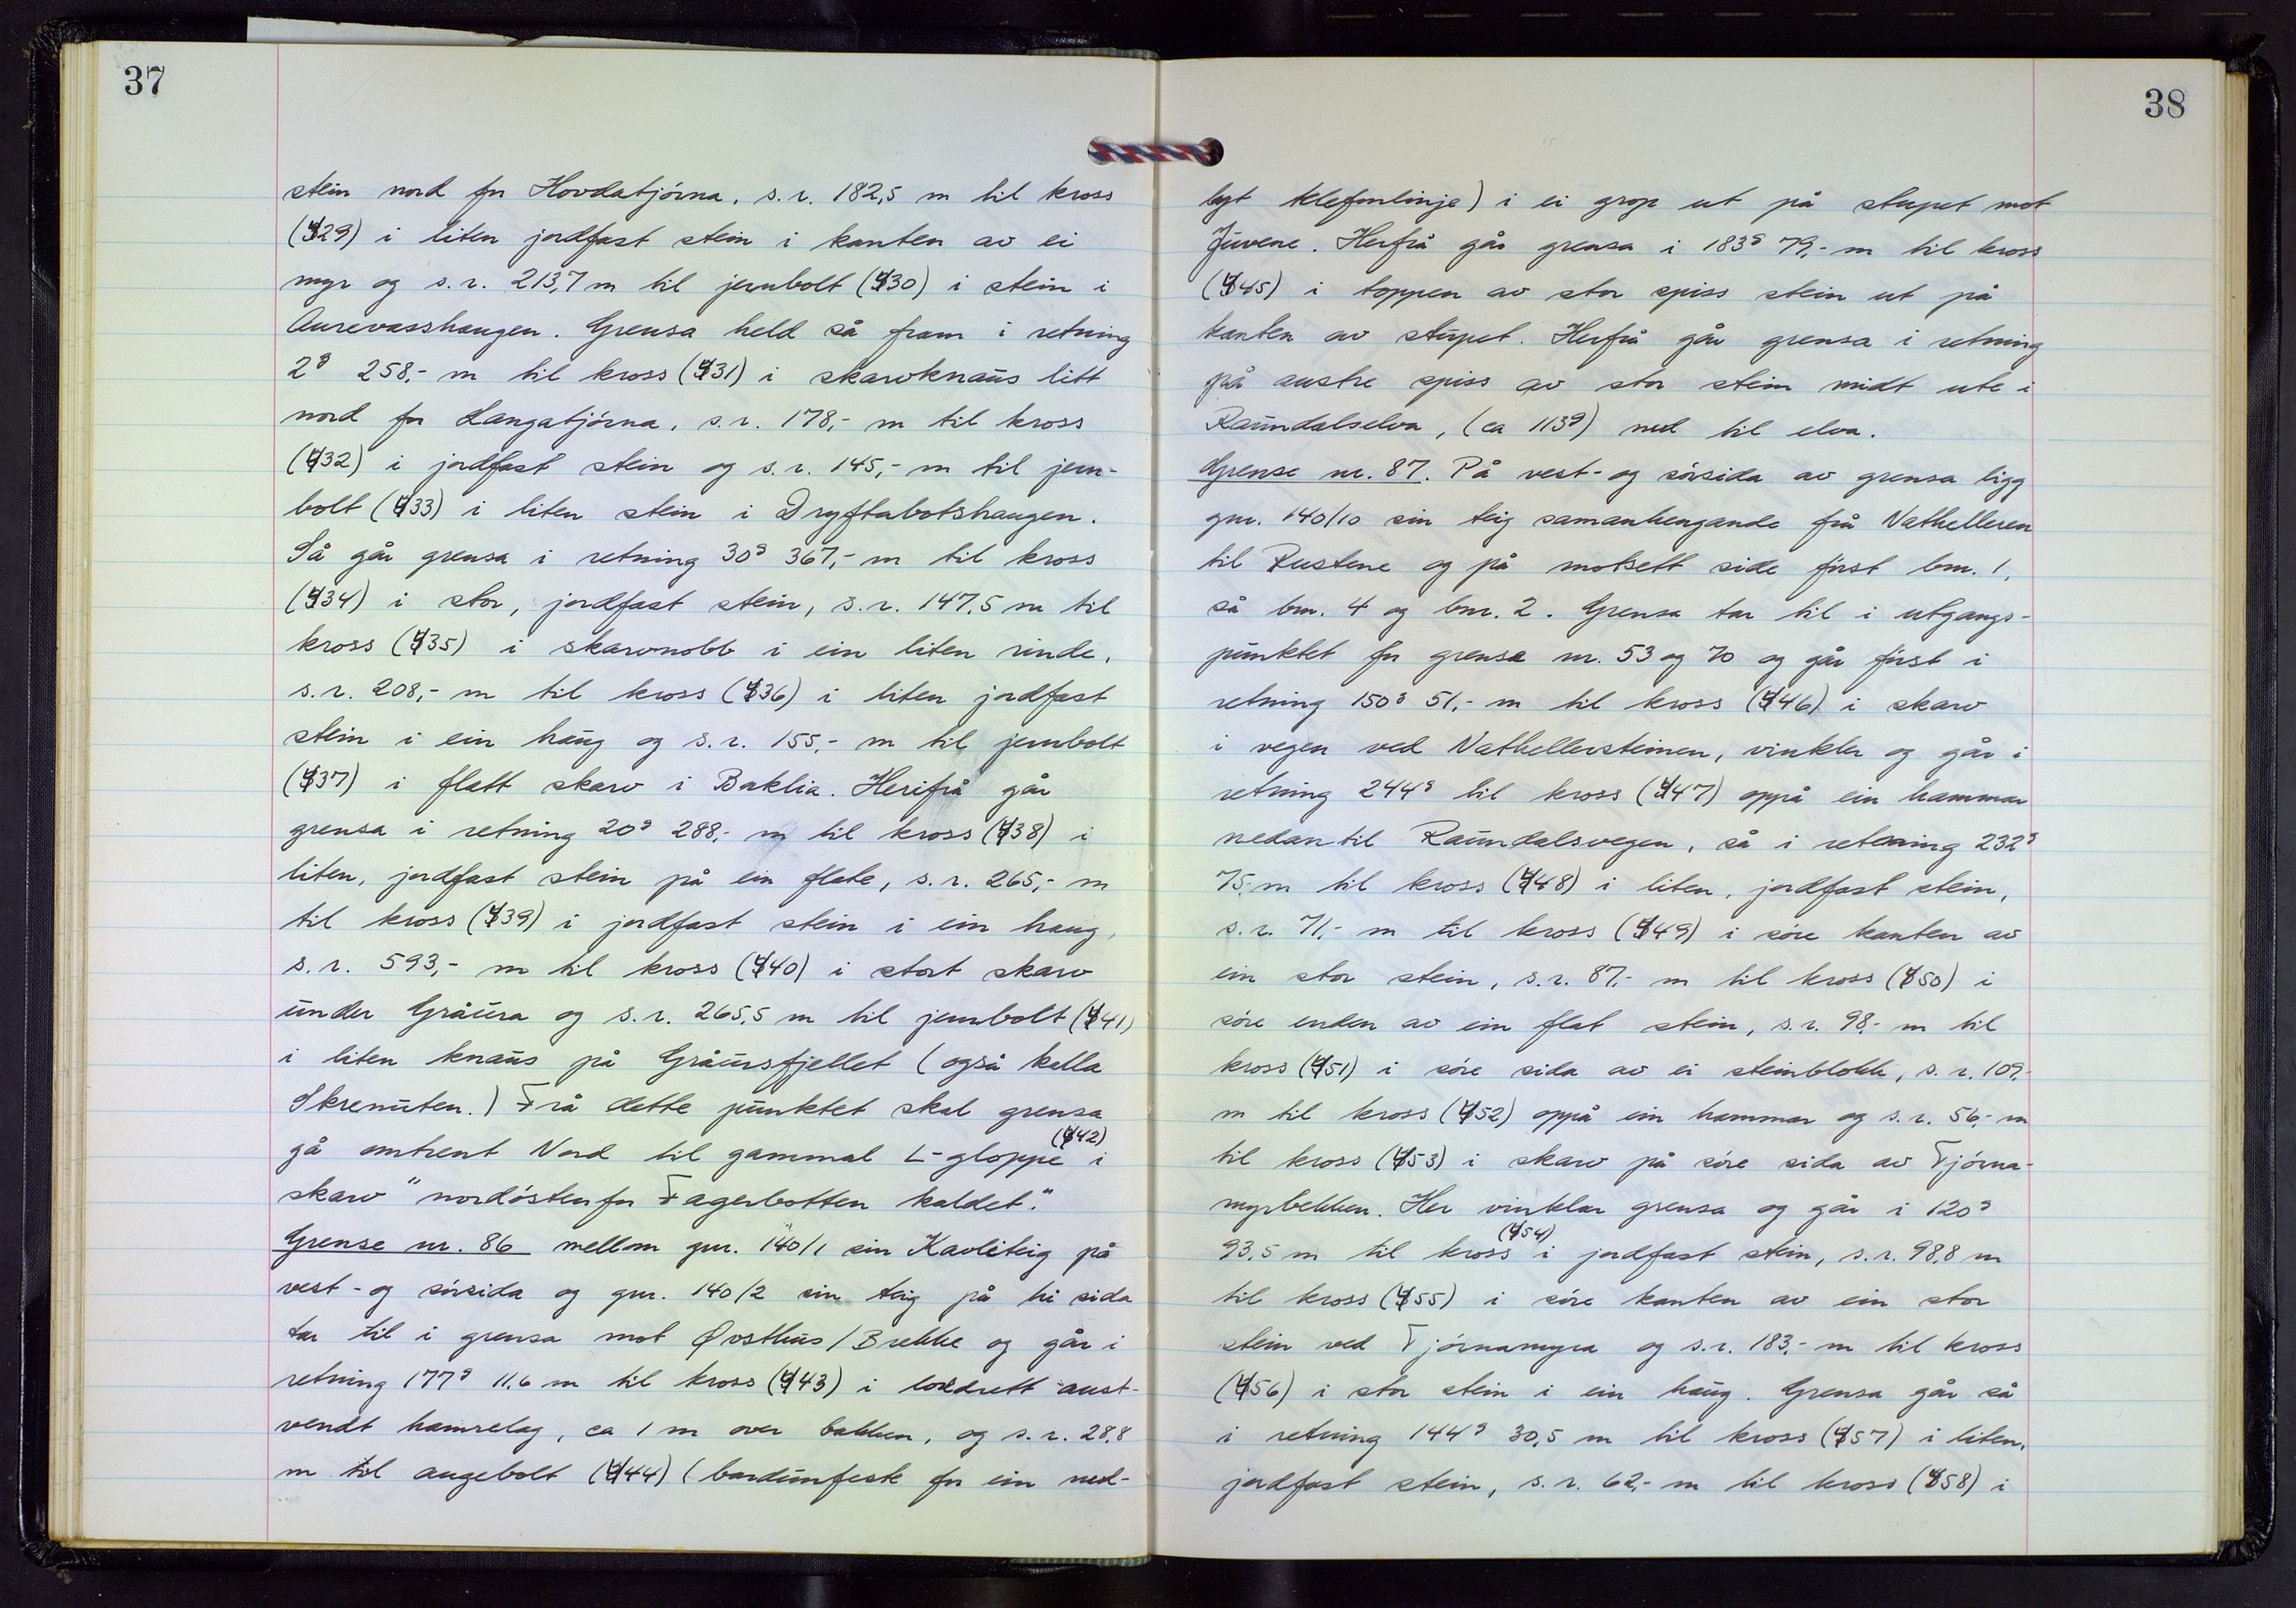 37
stein nord for Hovdatjórna, s.r. 182,5 m til kross
(429) i liten jordfast stein i kanten av ei
myr og s.r. 213,7 m til jernbolt (430) i stein i
Aurevasshaugen. Grensa held så fram i retning
2g 258,- m til kross (431) i skarvknaus litt
nord for Langatjórna, s.r. 178,- m til kross
(432) i jordfast stein og s.r. 145,- m til jern-
bolt (433) i liten stein i Dryftabotshaugen.
Så går grensa i retning 30g 367,- m til kross
(434) i stor, jordfast stein, s.r. 147,5 m til
kross (435) i skarvnobb i ein liten rinde,
s.r. 208,- m til kross (436) i liten jordfast
stein i ein haug og s.r. 155,- m til jernbolt
(437) i flatt skarv i Baklia. Herifrå går
grensa i retning 20g 288,- m til kross (438) i
liten, jordfast stein på ein flate, s.r. 265,- m
til kross (439) i jordfast stein i ein haug,
s.r. 593,- m til kross (440) i stort skarv
under Gråura og s.r. 265,5 m til jernbolt (441)
i liten knaus på Gråursfjellet (også kalla
Skrenuten.) Frå dette punktet skal grensa
gå omtrent Nord til gammal L-gloppe (442) i
skarv "nordóstenfor Fagerbotten kaldet."
Grense nr. 86 mellom gnr. 140/1 sin Kavliteig på
vest- og sórsida og gnr. 140/2 sin teig på hi sida
tar til i grensa mot Øvsthus/Brekke og går i
retning 177g 11,6 m til kross (443) i loddrett aust-
vendt hamrelag, ca 1 m over bakken, og s.r. 28,8
m til augebolt (444) (bardunfeste for ein ned-
38
lagt telefonlinje) i ei grop ut på stupet mot
Juvene. Herfrå går grensa i 183g 79,- m til kross
(445) i toppen av stor spiss stein ut på
kanten av stupet. Herfrå går grensa i retning
på austre spiss av stor stein midt ute i
Raundalselva, (ca 113g) ned til elva.
Grense nr. 87. På vest- og sórsida av grensa ligg
gnr. 140/10 sin teig samanhengande frå Nathelleren
til Rustene og på motsett side fórst bnr. 1,
så bnr. 4 og bnr. 2. Grensa tar til i utgangs-
punktet for grensa nr. 53 og 70 og går fórst i
retning 150g 51,- m til kross (446) i skarv
i vegen ved Nathellersteinen, vinkler og går i
retning 244g til kross (447) oppå ein hammar
nedantil Raundalsvegen, så i retning 232g
75,- m til kross (448) i liten, jordfast stein,
s.r. 71,- m til kross (449) i sóre kanten av
ein stor stein, s.r. 87,- m til kross (450) i
sóre enden av ein flat stein, s.r. 98,- m til
kross (451) i sóre sida av ei steinblokk, s.r. 109,-
m til kross (452) oppå ein hammar og s.r. 56,- m
til kross (453) i skarv på sóre sida av Tjórna-
myrbekken. Her vinklar grensa og går i 120g
93,5 m til kross (454) i jordfast stein, s.r. 98,8 m
til kross (455) i sóre kanten av ein stor
stein ved Tjórnamyra og s.r. 183,- m til kross
(456) i stor stein i ein haug. Grensa går så
i retning 144g 30,5 m til kross (457) i liten,
jordfast stein, s.r. 62,- m til kross (458) i